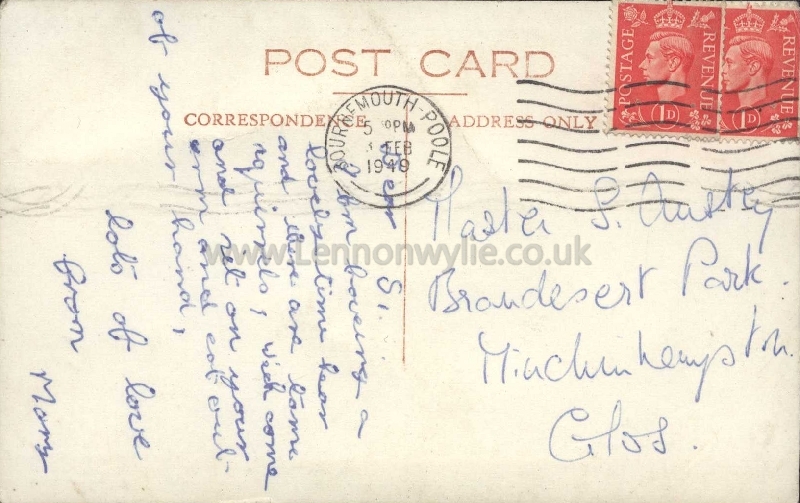 POST CARD
CORRESPONDENCE
ADDRESS ONLY
BOURNEMOUTH-POOLE
5 PM
3 FEB
1949
POSTAGE REVENUE
1D
POSTAGE REVENUE
1D
Dear Si...
I am having a
lovely time hear
and there are tame
squirels, wich come
and set on your
erm and eat out
of your hand,
of your
lots of love
from
Mary
Master S. Anstey
Brandesert Park.
Minchinhampston.
Glos.
www.Lennonwylie.co.uk